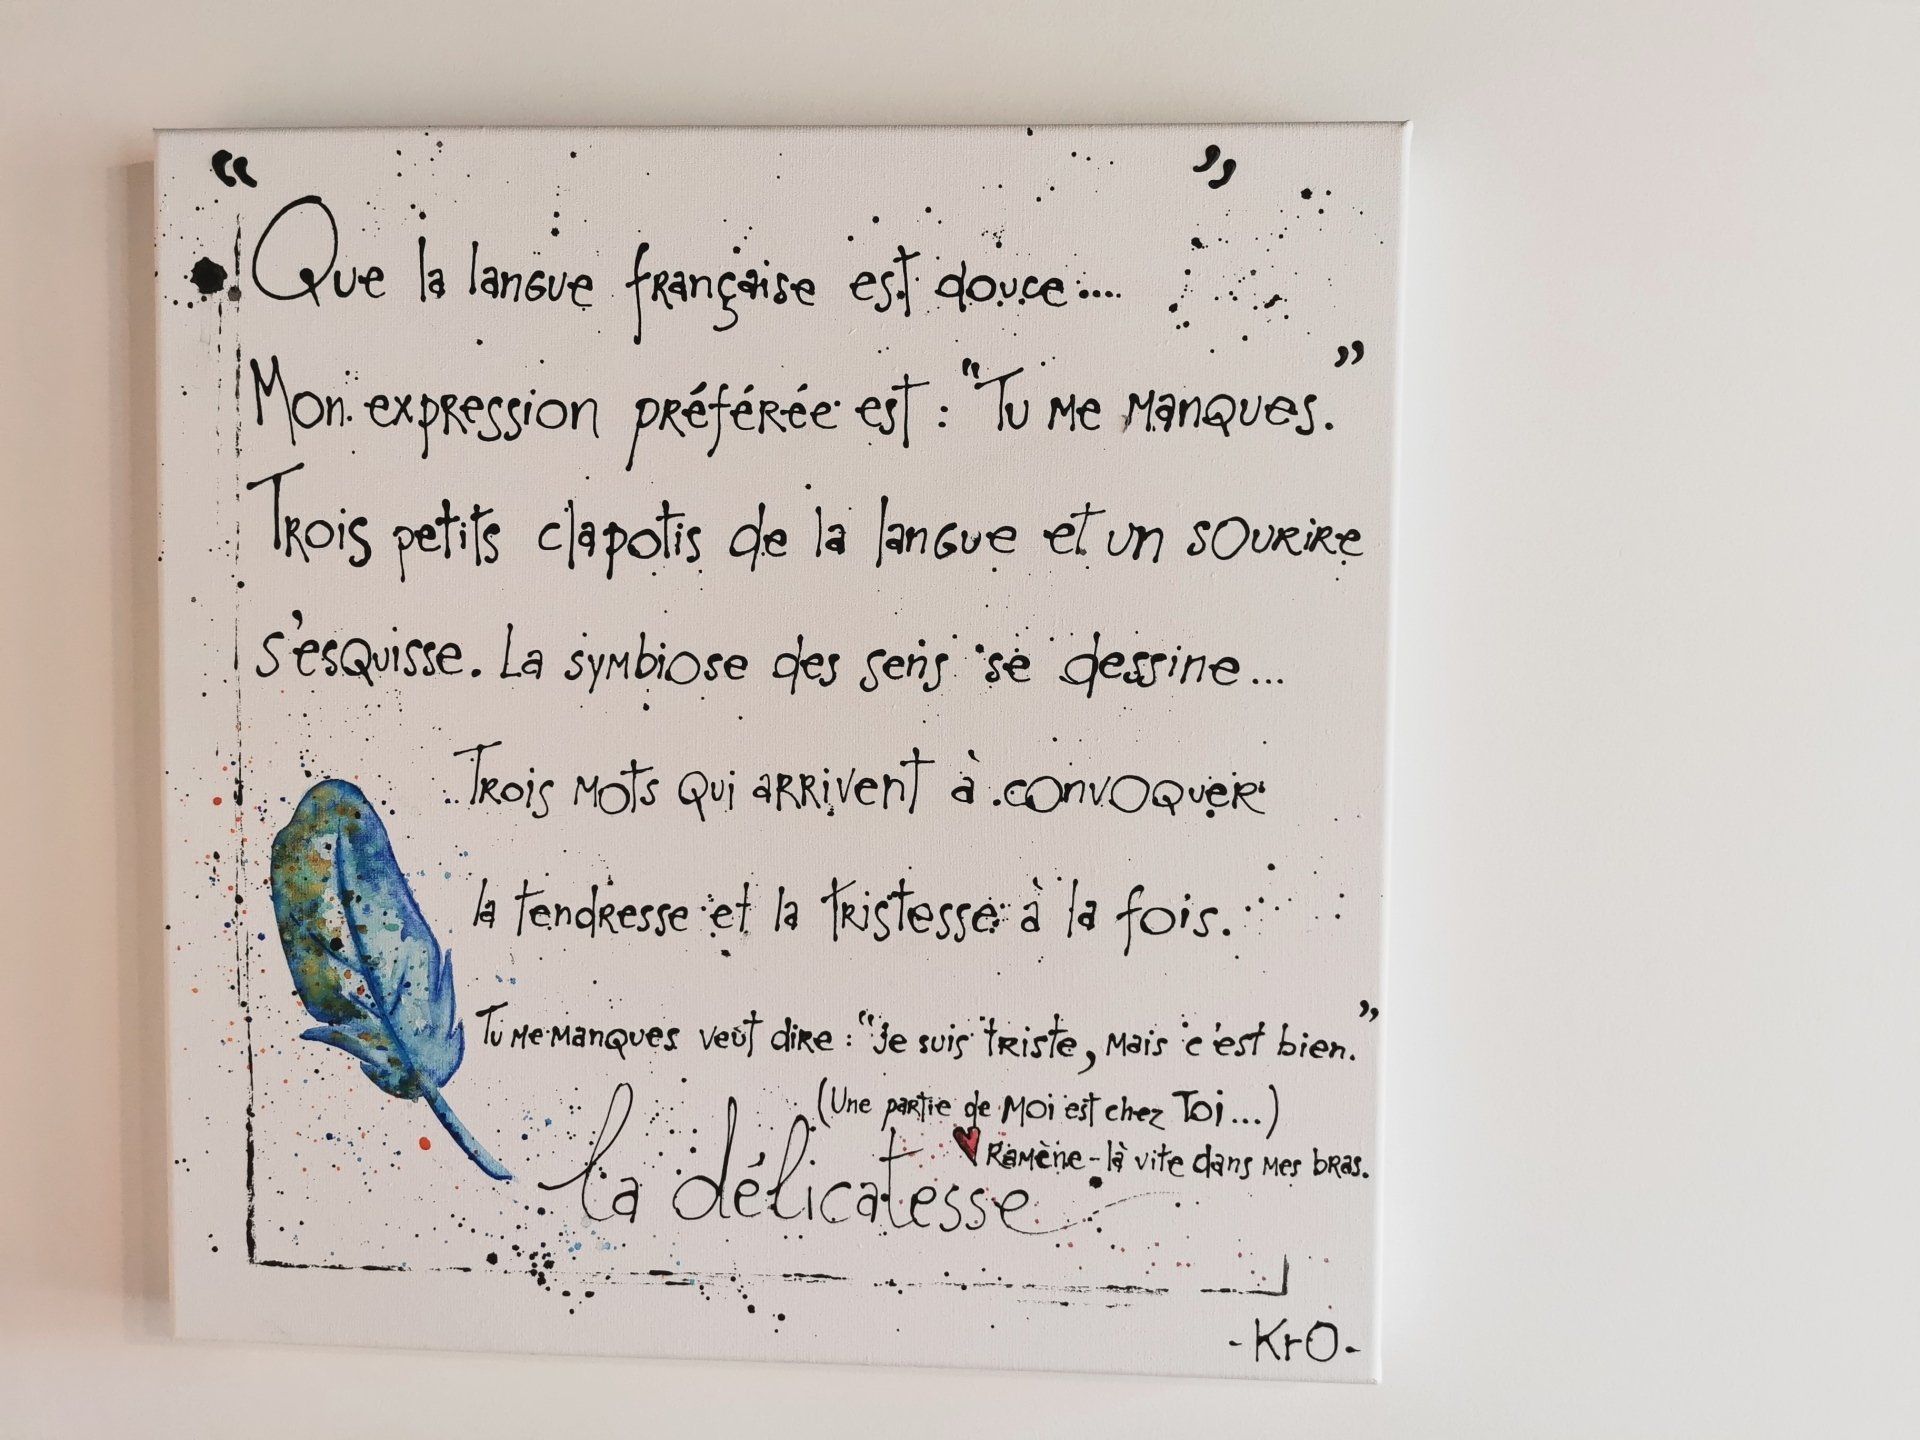 “ ”
Que la langue française est douce....
Mon expression préférée est : "Tu me manques.”
Trois petits clapotis de la langue et un sourire
s'esquisse. La symbiose des sens se dessine...
Trois mots qui arrivent à convoquer
la tendresse et la tristesse à la fois.
Tu me manques veut dire : “Je suis triste, mais c'est bien.”
(Une partie de Moi est chez Toi...)
Ramène-là vite dans mes bras.
la délicatesse
-KrO-